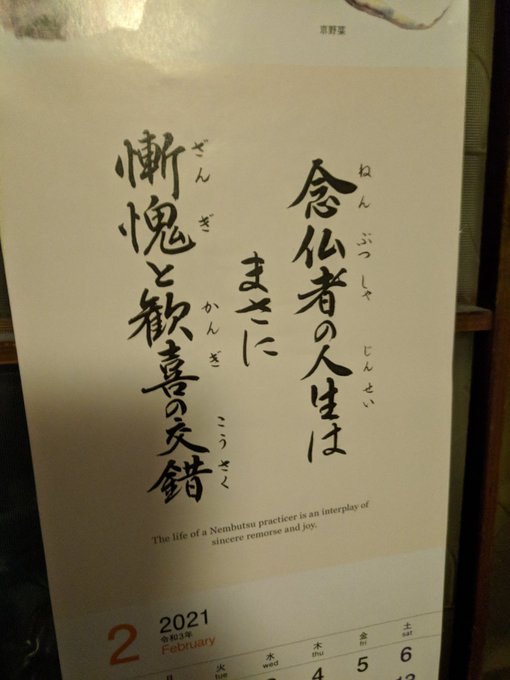 京野菜
念仏者の人生は
ねんぶつしゃ じんせい
まさに
慚愧と歓喜の交錯
ざんぎ かんぎ こうさく
The life of a Nembutsu practicer is an interplay of
sincere remorse and joy.
2
2021
令和3年
February
火 水 木 金 土
tue wed thu fri sat
4 5 6